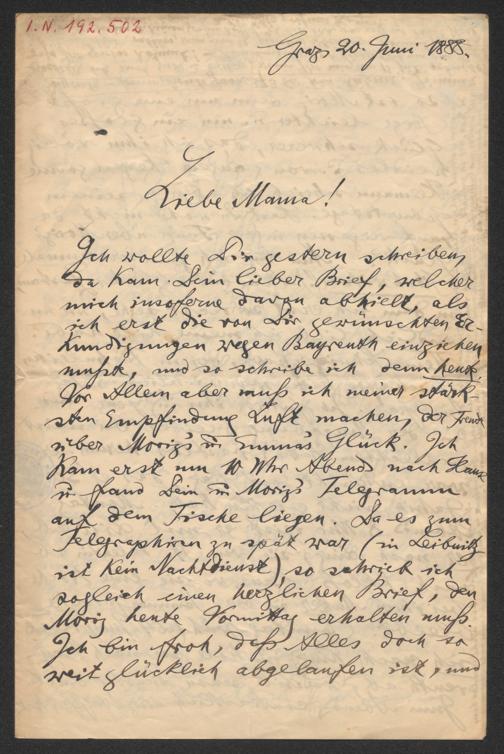 I.N. 192.502
Graz, 20. Juni 1888.
Liebe Mama!
Ich wollte Dir gestern schreiben,
da kam Dein lieber Brief, welcher
mich insoferne davon abhielt, als
ich erst die von Dir gewünschten Er-
kundigungen wegen Bayreuth einziehen
musste, und so schreibe ich denn heute.
Vor Allem aber muß ich meiner stärk-
sten Empfindung Luft machen, der Freude
über Moriz's u. Emma's Glück. Ich
kam erst um 10 Uhr Abends nach Hause
u. fand Dein u. Moriz's Telegramm
auf dem Tische liegen. Da es zum
Telegraphiren zu spät war (in Leibnitz
ist kein Nachtdienst), so schrieb ich
sogleich einen herzlichen Brief, den
Moriz heute Vormittag erhalten muß.
Ich bin froh, daß Alles doch so
weit glücklich abgelaufen ist, und